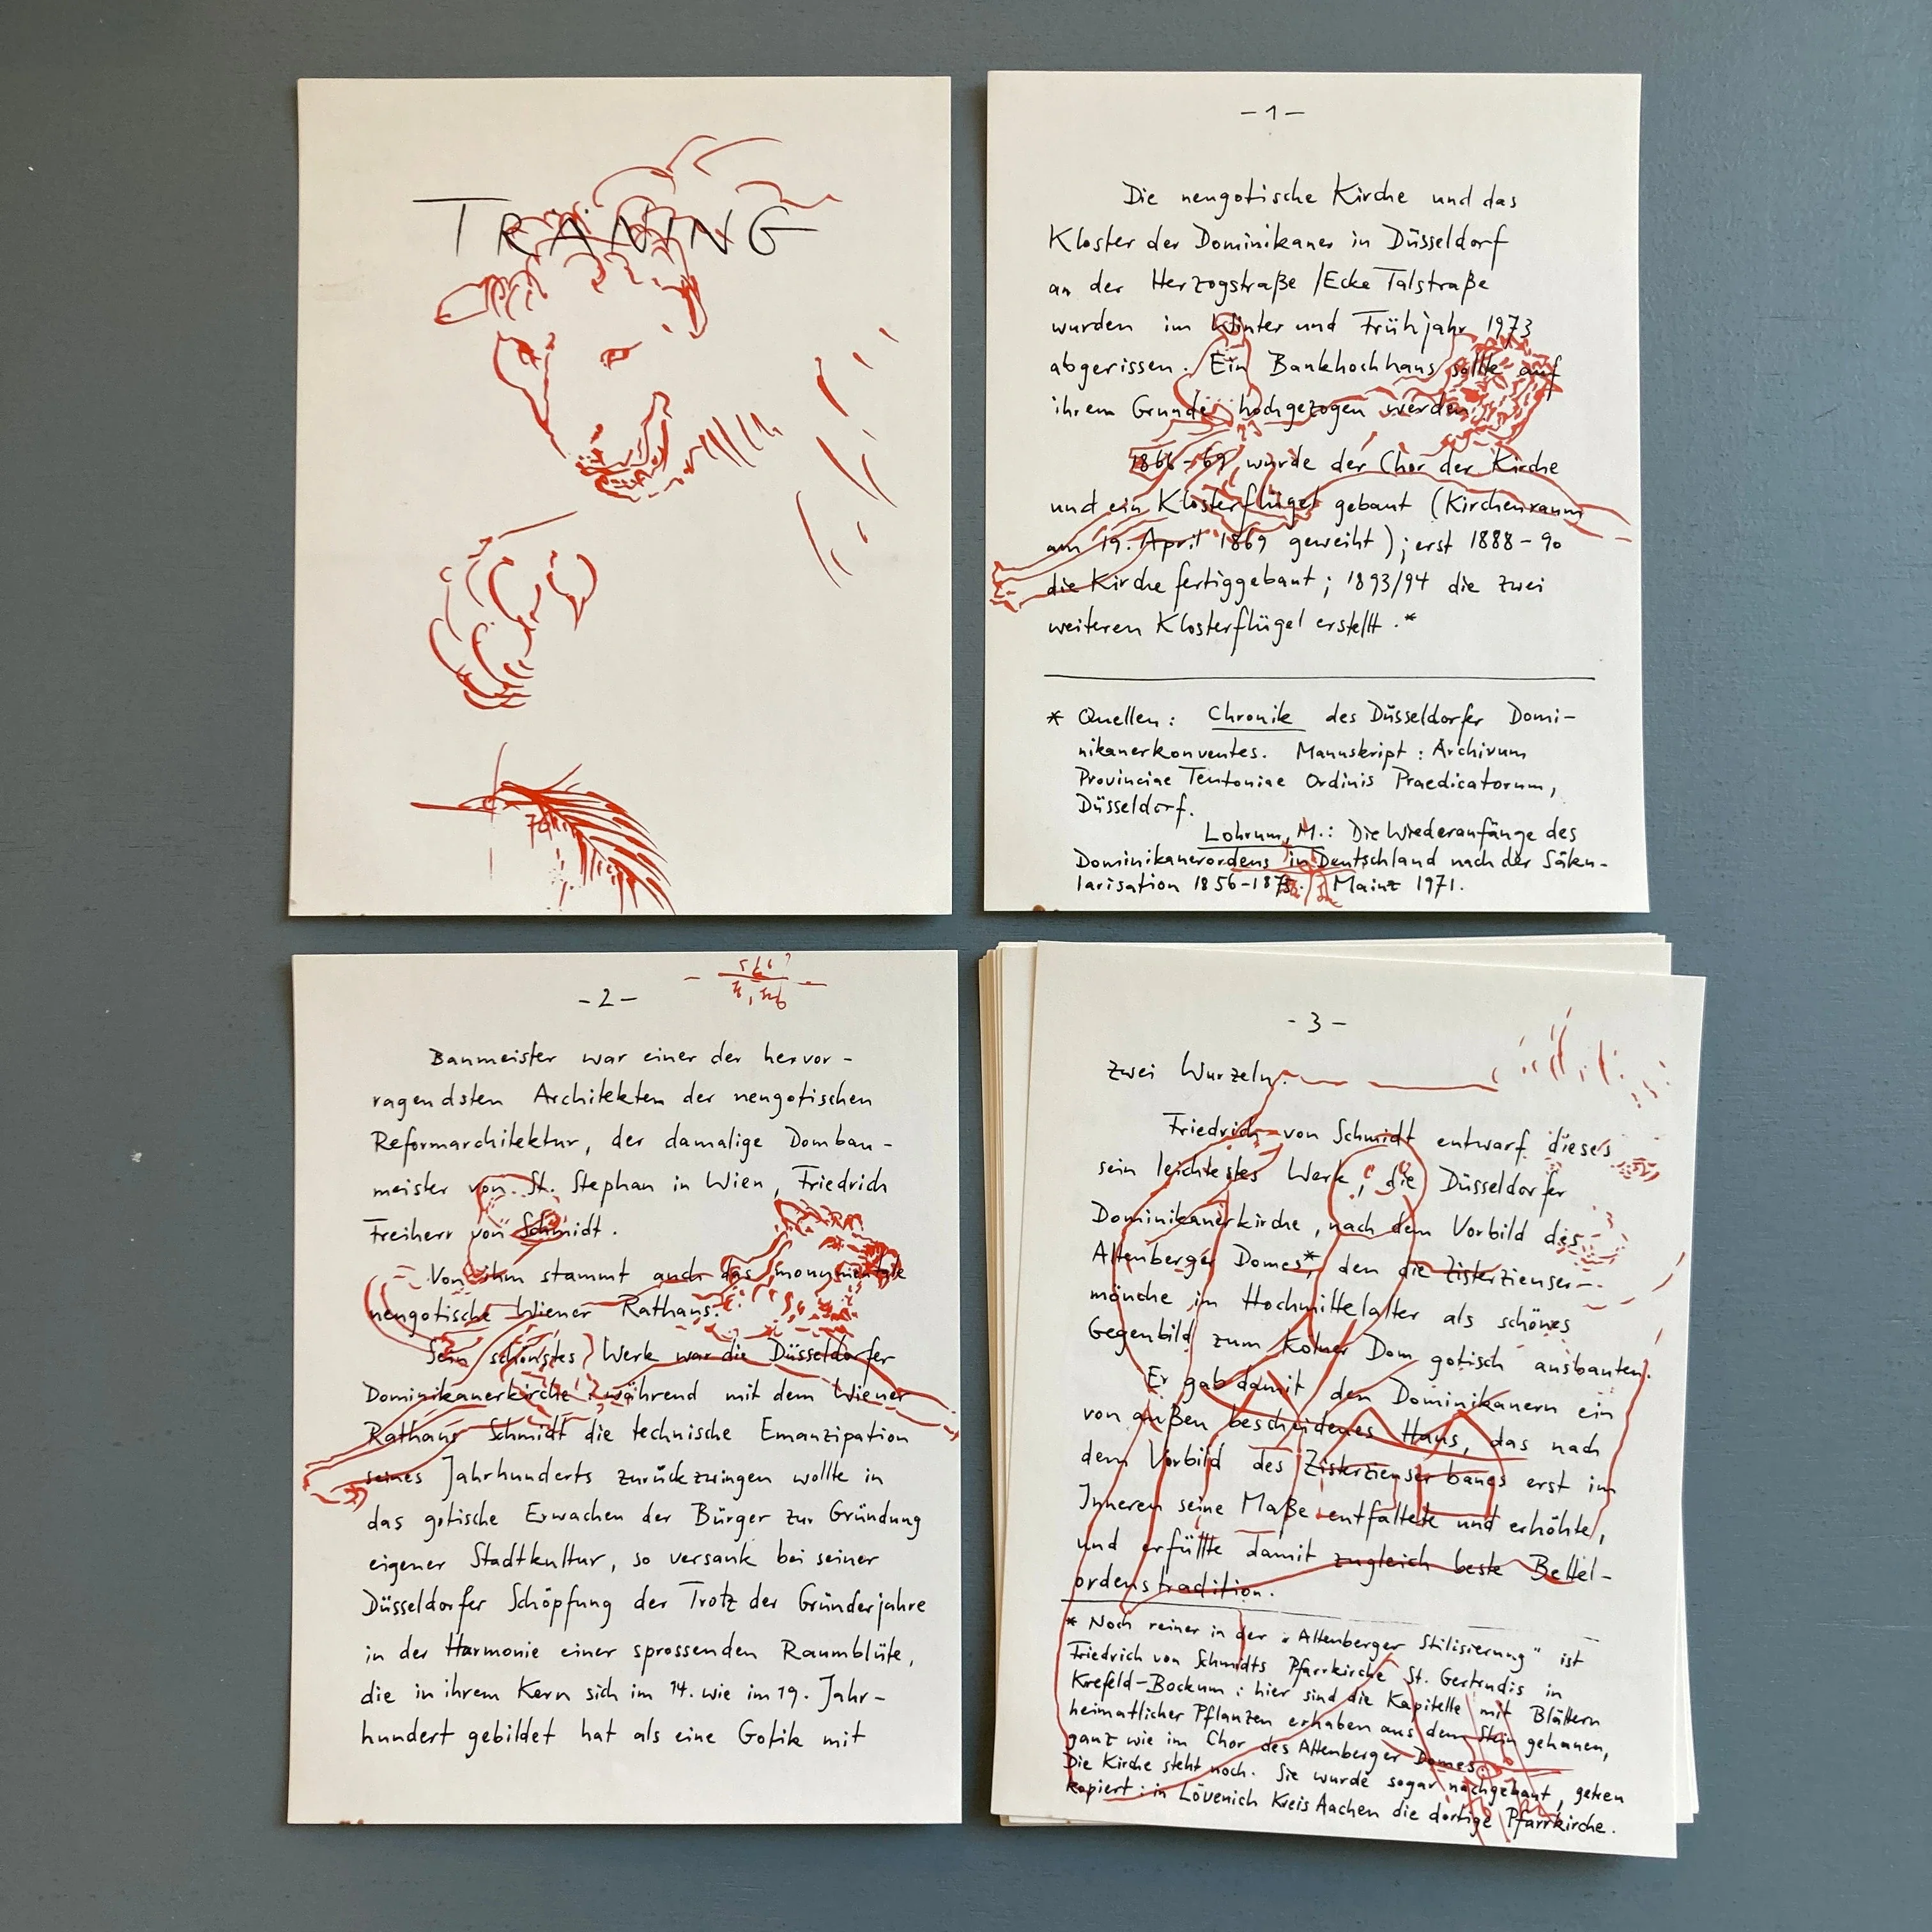 TRAINING
- 1 -
Die neugotische Kirche und das
Kloster der Dominikaner in Düsseldorf
an der Herzogstraße / Ecke Talstraße
wurden im Winter und Frühjahr 1973
abgerissen. Ein Bankhochhaus sollte auf
ihrem Grunde hochgezogen werden.
1866-69 wurde der Chor der Kirche
und ein Klosterflügel gebaut (Kirchenraum
am 19. April 1869 geweiht); erst 1888-90
die Kirche fertiggebaut; 1893/94 die zwei
weiteren Klosterflügel erstellt.*
* Quellen: Chronik des Düsseldorfer Domi-
nikanerkonventes. Manuskript: Archivum
Provinciae Teutoniae Ordinis Praedicatorum,
Düsseldorf.
Lohrum, M.: Die Wiederanfänge des
Dominikanerordens in Deutschland nach der Säku-
larisation 1856-1875. Mainz 1971.
- 2 -
Baumeister war einer der hervor-
ragendsten Architekten der neugotischen
Reformarchitektur, der damalige Dombau-
meister von St. Stephan in Wien, Friedrich
Freiherr von Schmidt.
Von ihm stammt auch das monumentale
neugotische Wiener Rathaus.
Sein schönstes Werk war die Düsseldorfer
Dominikanerkirche: während mit dem Wiener
Rathaus Schmidt die technische Emanzipation
seines Jahrhunderts zurückzwingen wollte in
das gotische Erwachen der Bürger zur Gründung
eigener Stadtkultur, so versank bei seiner
Düsseldorfer Schöpfung der Trotz der Gründerjahre
in der Harmonie einer sprossenden Raumblüte,
die in ihrem Kern sich im 14. wie im 19. Jahr-
hundert gebildet hat als eine Gotik mit
- 3 -
zwei Wurzeln.
Friedrich von Schmidt entwarf dieses
sein leichtestes Werk, die Düsseldorfer
Dominikanerkirche, nach dem Vorbild des
Altenberger Domes*, den die Zisterzienser-
mönche im Hochmittelalter als schönes
Gegenbild zum Kölner Dom gotisch ausbauten.
Er gab damit den Dominikanern ein
von außen bescheidenes Haus, das nach
dem Vorbild des Zisterzienserbaues erst im
Inneren seine Maße entfaltete und erhöhte,
und erfüllte damit zugleich beste Bettel-
ordenstradition.
* Noch reiner in der "Altenberger Stilisierung" ist
Friedrich von Schmidts Pfarrkirche St. Gertrudis in
Krefeld-Bockum: hier sind die Kapitelle mit Blättern
heimatlicher Pflanzen erhaben aus dem Stein gehauen,
ganz wie im Chor des Altenberger Domes.
Die Kirche steht noch. Sie wurde sogar nachgebaut, getreu
kopiert: in Lövenich Kreis Aachen die dortige Pfarrkirche.